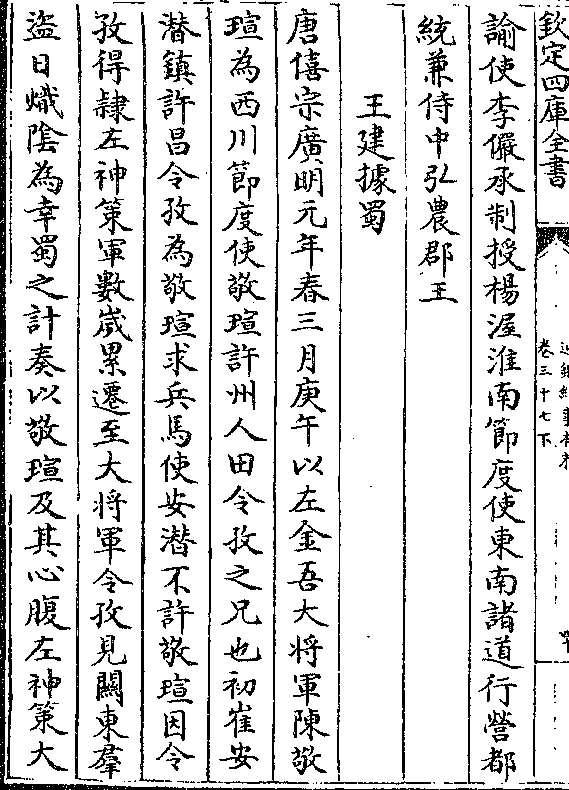 欽定四庫全書
卷三十七下
諭使李儼承制授楊渥淮南節度使東南諸道行營都
統兼侍中弘農郡王
王建據蜀
唐僖宗廣明元年春三月庚午以左金吾大將軍陳敬
瑄為西川節度使敬瑄許州人田令孜之兄也初崔安
潛鎮許昌令孜為敬瑄求兵馬使安潛不許敬瑄因令
孜得隷左神策軍數歲累遷至大將軍令孜見關東羣
盜日熾隂為幸蜀之計奏以敬瑄及其心腹左神策大